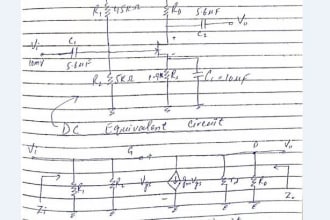 R₁ 45KΩ R_D 5.6μF V₀
C₂
Vi C₁
10mV 5.6μF
R₂ 5KΩ R_s C_s = 10μF
DC Equivalent Circuit
Vi G D V₀
R₁ R₂ Vgs gmVgs rd R_D
Zi Z₀